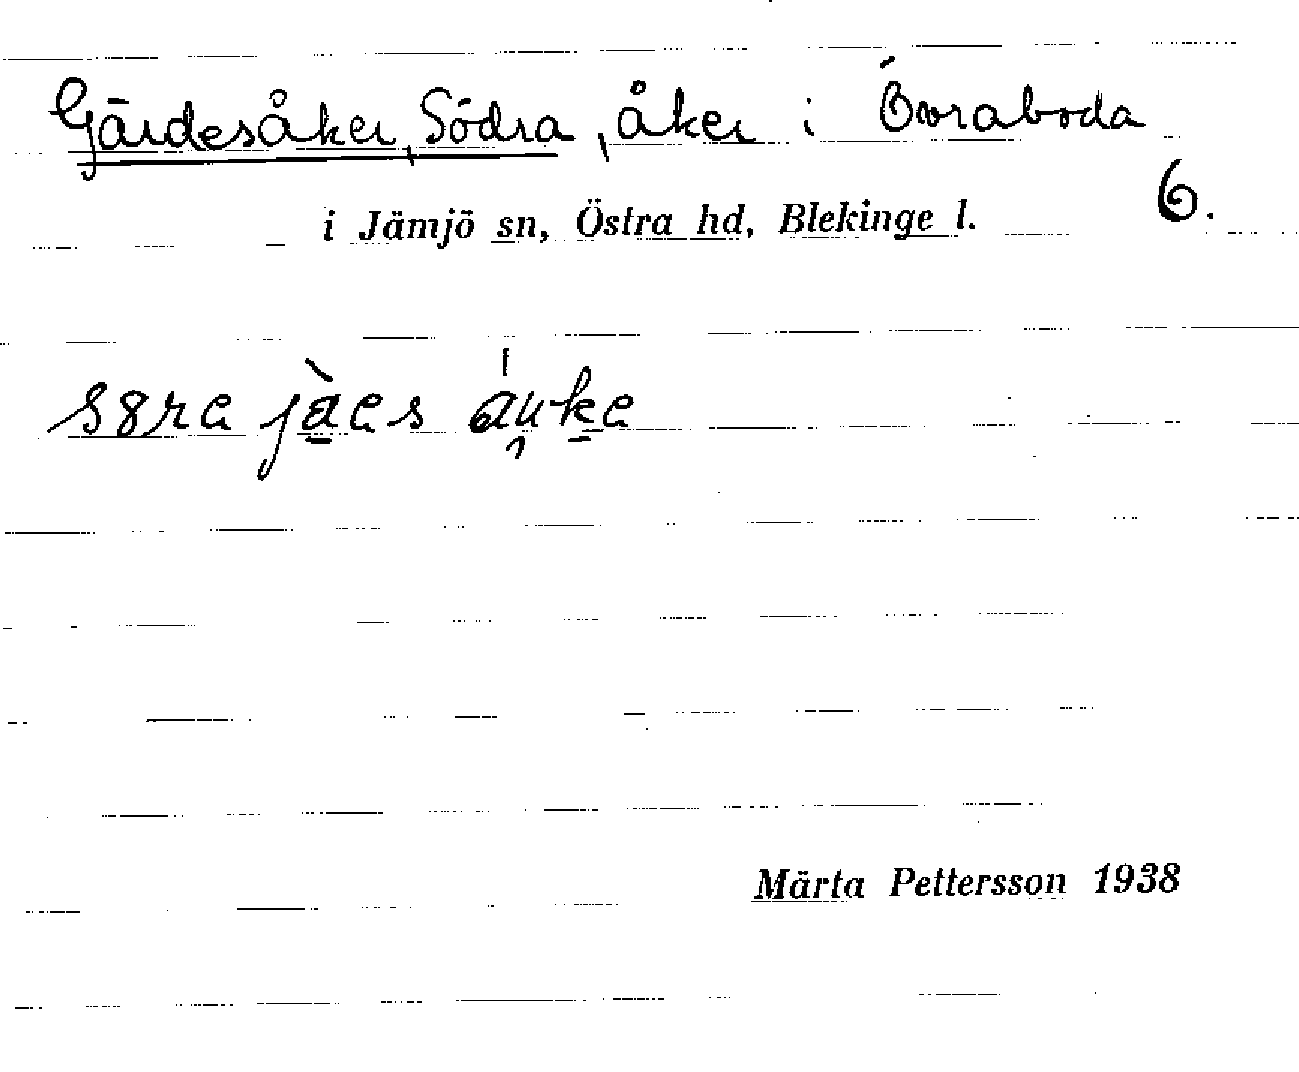 Gärdesåker, Södra, åker i Övraboda
6.
i Jämjö sn, Östra hd, Blekinge l.
Märta Pettersson 1938